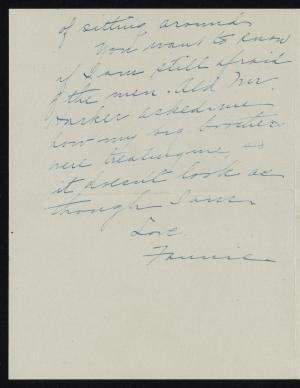 of setting around
You want to know
if I am still afraid
of the men. Old Mr.
Parker asked me
how my big brothers
were treating me, so
it doesn't look as
though I am.
Love
Fannie